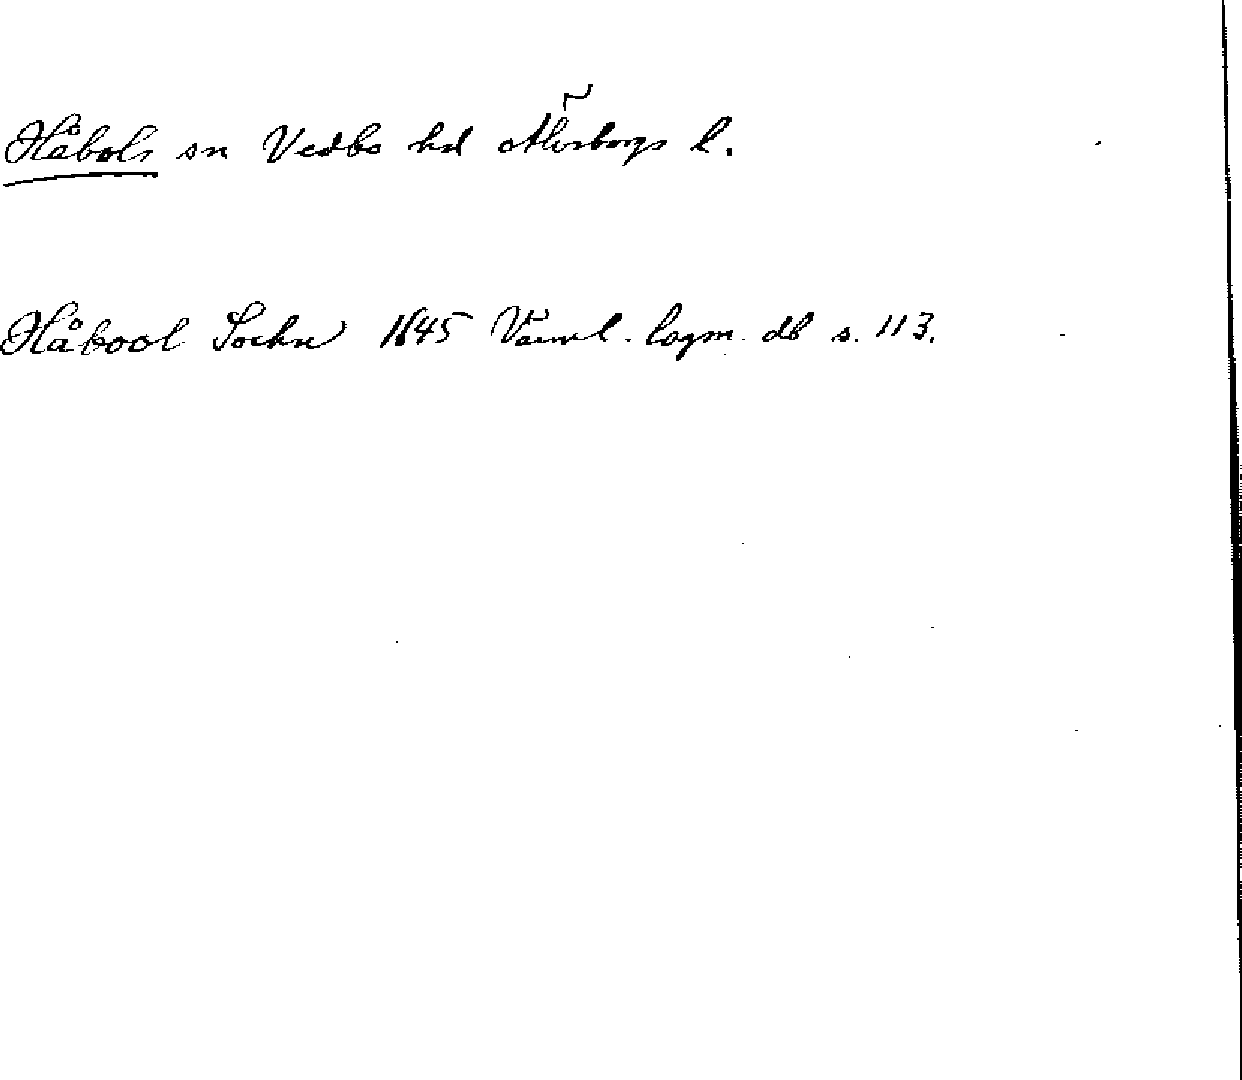 Håbols sn Vedbo hd Älvsborgs l.
Håbool Sochn 1645 Värml. lagm. db s. 113.